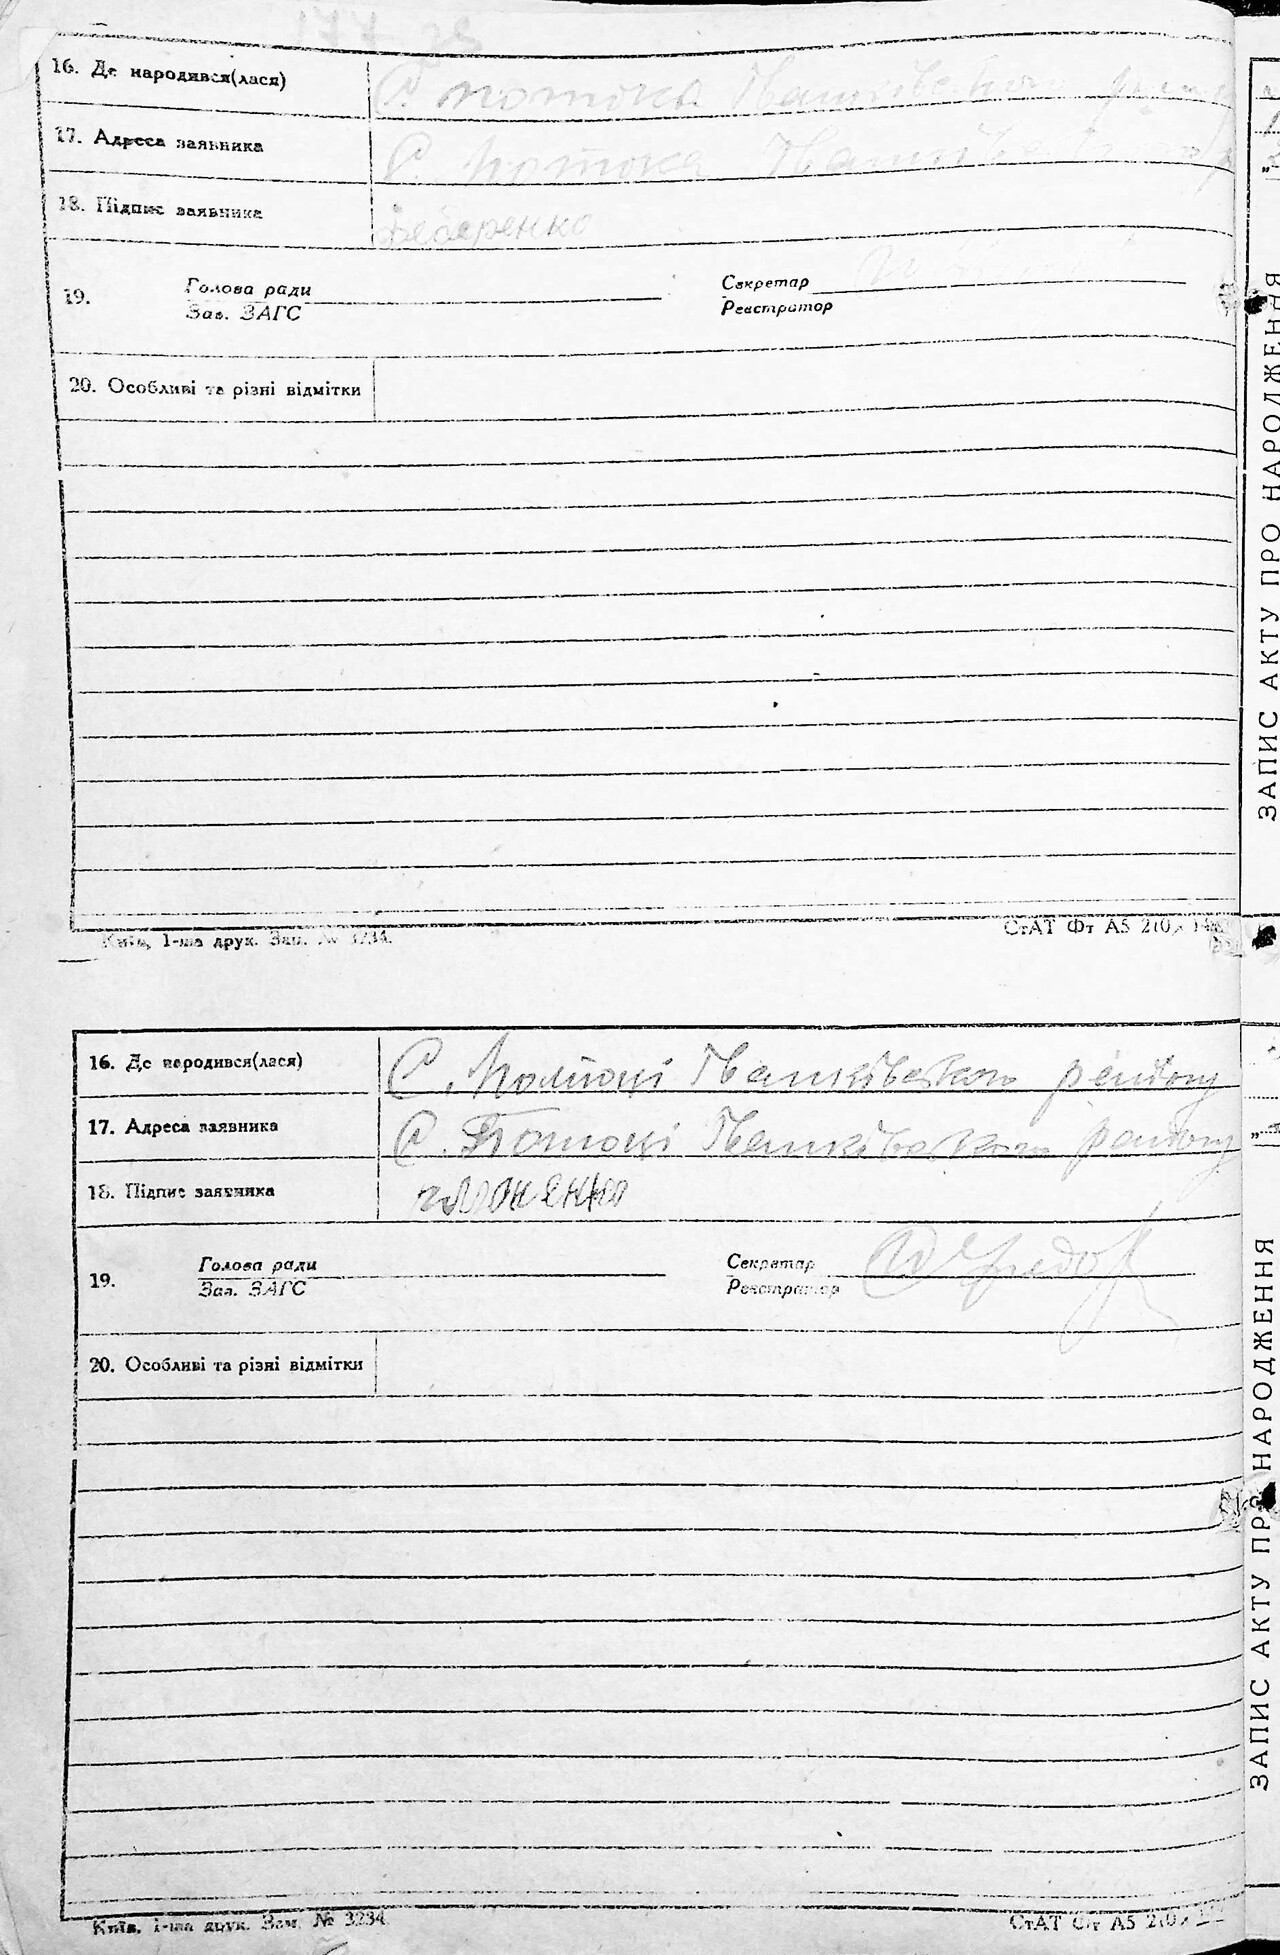 177 зв
16. Де народився(лася) С. Потока Іванківського району
17. Адреса заявника С. Потока Іванківського р
18. Підпис заявника Федоренко
19. Голова ради Секретар
Зав. ЗАГС Реєстратор
20. Особливі та різні відмітки
Київ, 1-ша друк. Зам. № 3234.
СтАТ Фт А5 210×148
16. Де народився(лася) С. Потоці Іванківського району
17. Адреса заявника С. Потоці Іванківського району
18. Підпис заявника
19. Голова ради Секретар
Зав. ЗАГС Реєстратор
20. Особливі та різні відмітки
Київ, 1-ша друк. Зам. № 3234
СтАТ Фт А5 210×
ЗАПИС АКТУ ПРО НАРОДЖЕННЯ
ЗАПИС АКТУ ПРО НАРОДЖЕННЯ